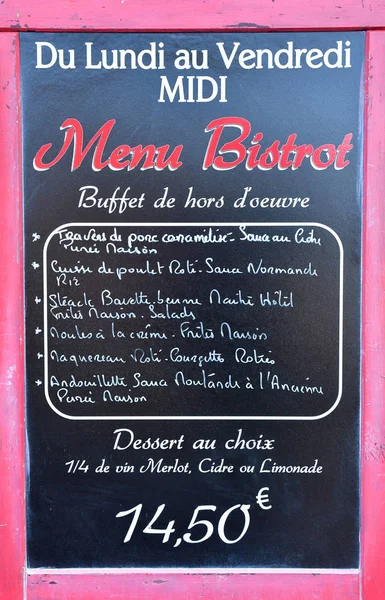 Du Lundi au Vendredi
MIDI
Menu Bistrot
Buffet de hors d'oeuvre
* Travers de porc caramélisé - Sauce au Cidre
Purée Maison
* Cuisse de poulet Roti - Sauce Normande
Riz
* Steack Bavette - beurre Maitre Hôtel
Frites Maison - Salads
* Moules à la crème - Frites Maison
* Maquereau Roti - Courgettes Roties
* Andouillette Sauce Moutarde à l'Ancienne
Purée Maison
Dessert au choix
1/4 de vin Merlot, Cidre ou Limonade
14,50€